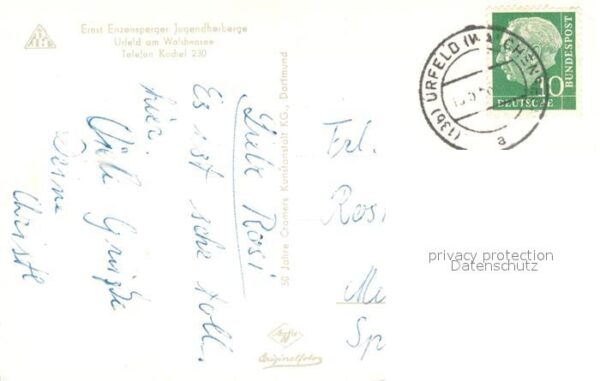 Ernst Enzensperger Jugendherberge
Urfeld am Walchensee
Telefon Kochel 230
Liebe Rosi
Es ist sehr toll.
hier.
Viele Grüße
Deine
Christl
50 Jahre Cramers Kunstanstalt KG., Dortmund
Agfa
Originalfoto
Frl.
Rosi
(13b) URFELD (WALCHEN
a
10
DEUTSCHE
BUNDESPOST
privacy protection
Datenschutz